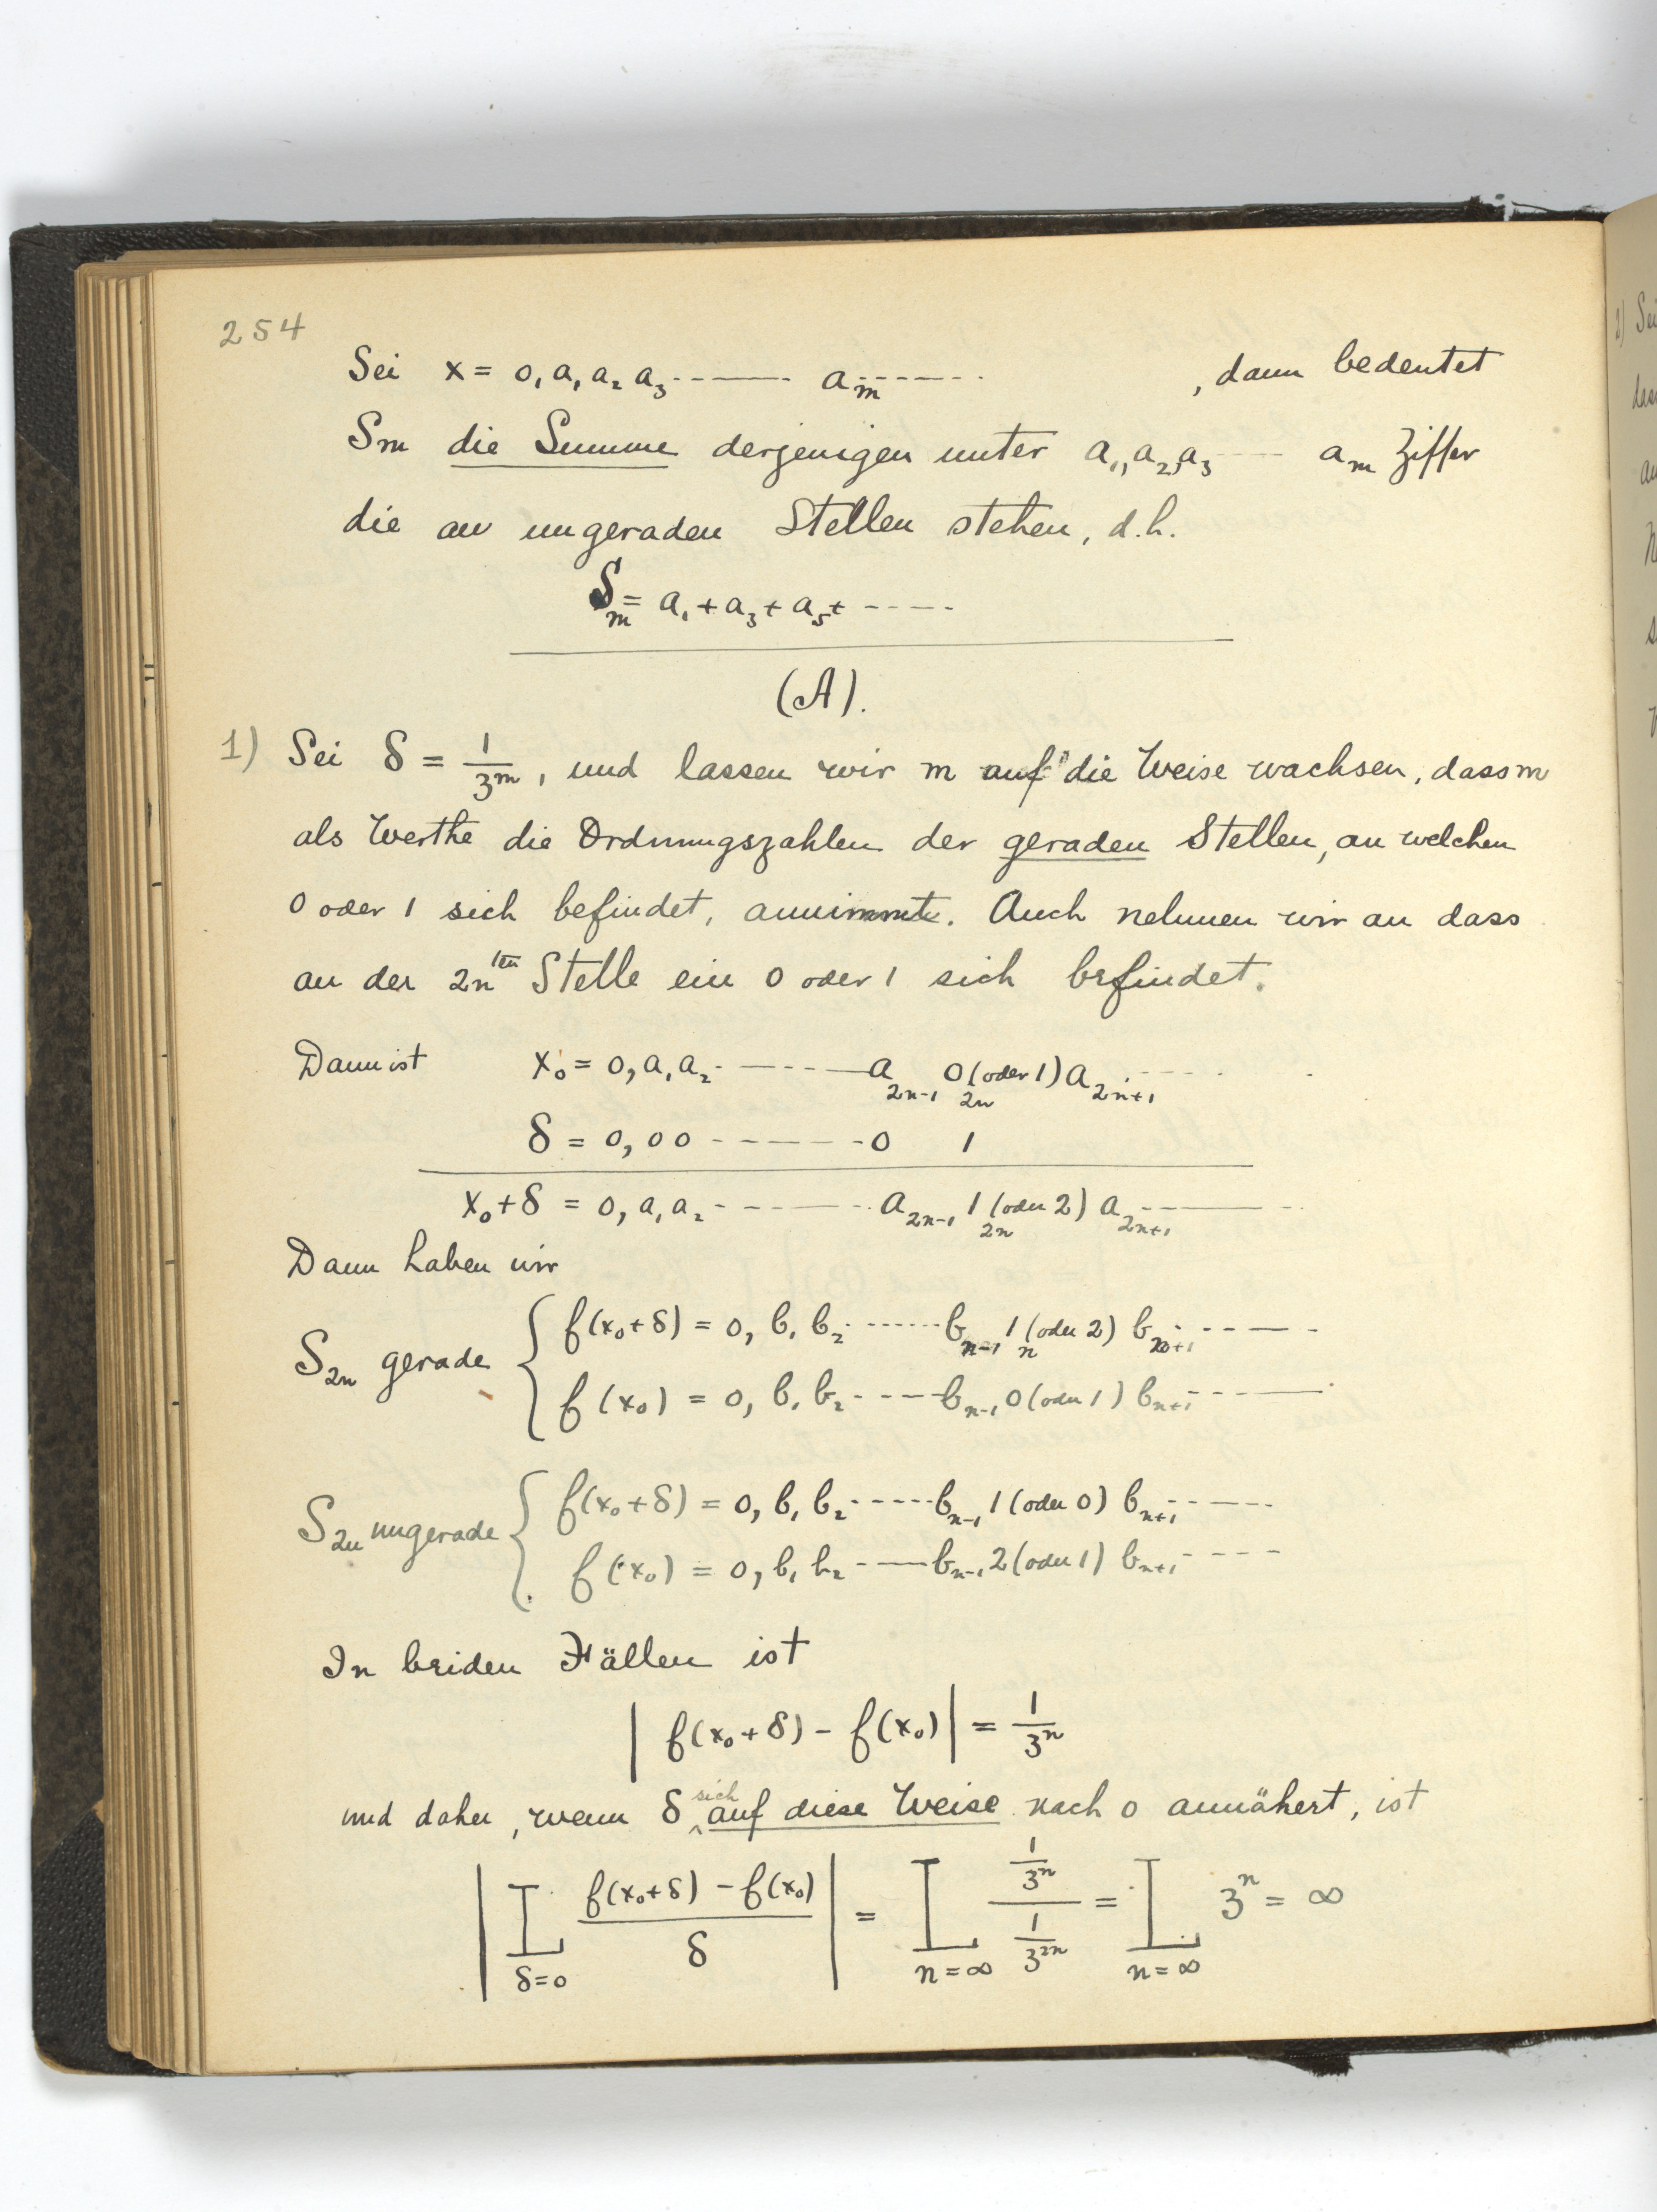 254
Sei x = 0, a₁ a₂ a₃ ------ aₘ ------ , dann bedeutet
Sm die Summe derjenigen unter a₁, a₂, a₃ ---- aₘ Ziffer
die an ungeraden Stellen stehen, d.h.
Sₘ = a₁ + a₃ + a₅ + -----
(A).
1) Sei δ = 1/3ᵐ, und lassen wir m auf die Weise wachsen, dass m
als Werthe die Ordnungszahlen der geraden Stellen, an welchen
0 oder 1 sich befindet, annimmt. Auch nehmen wir an dass
an der 2n ten Stelle ein 0 oder 1 sich befindet.
Dann ist x₀ = 0, a₁ a₂ ------ a₂ₙ₋₁ 0 (oder 1) a₂ₙ₊₁ ----
2n
δ = 0, 0 0 ------ 0 1
x₀ + δ = 0, a₁ a₂ ------ a₂ₙ₋₁ 1 (oder 2) a₂ₙ₊₁ ------
2n
Dann haben wir
S₂ₙ gerade { f(x₀+δ) = 0, b₁ b₂ ------ bₙ₋₁ 1 (oder 2) bₙ₊₁ ------
n
f(x₀) = 0, b₁ b₂ ------ bₙ₋₁ 0 (oder 1) bₙ₊₁ ------
S₂ₙ ungerade { f(x₀+δ) = 0, b₁ b₂ ------ bₙ₋₁ 1 (oder 0) bₙ₊₁ ------
f(x₀) = 0, b₁ b₂ ------ bₙ₋₁ 2 (oder 1) bₙ₊₁ ----
In beiden Fällen ist
| f(x₀+δ) - f(x₀) | = 1/3ⁿ
und daher, wenn δ sich auf diese Weise nach 0 annähert, ist
| L_{δ=0} (f(x₀+δ) - f(x₀))/δ | = L_{n=∞} (1/3ⁿ)/(1/3²ⁿ) = L_{n=∞} 3ⁿ = ∞